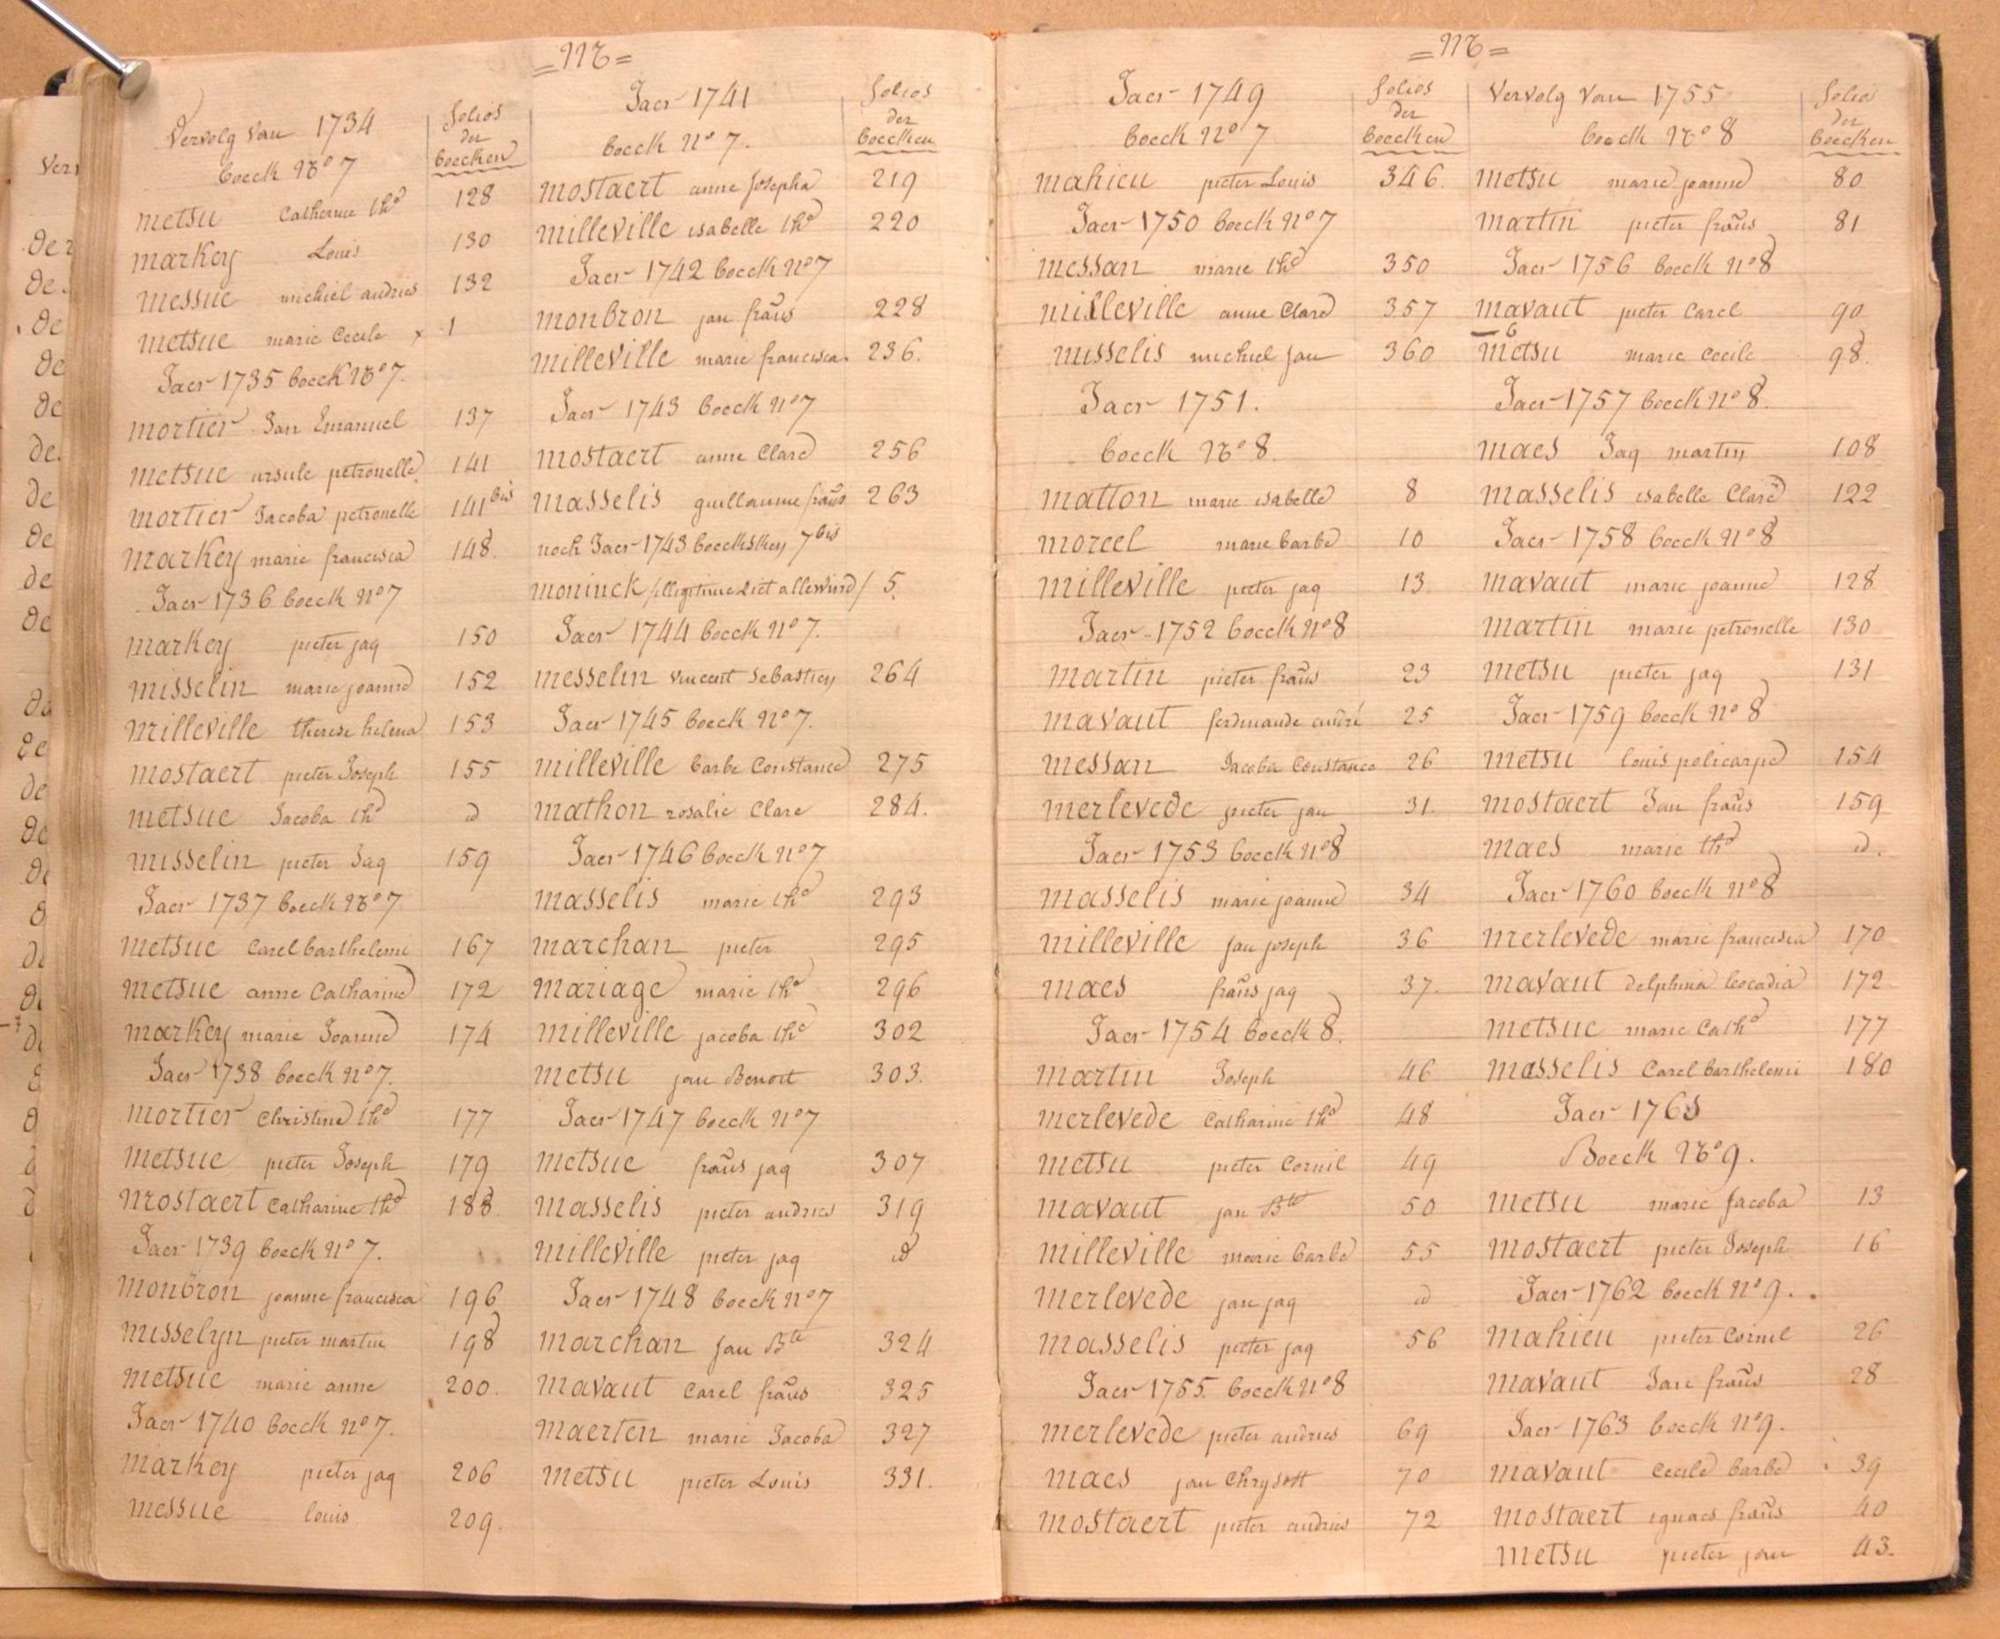 = M =
Vervolg van 1734
boeck No 7
folios
der
boecken
metsu Catherine thº 128
markey Louis 130
messue michiel andries 132
metsue marie Cecile x 1
Jaer 1735 boeck No 7.
mortier Jan Emanuel 137
metsue ursule petronelle. 141
mortier Jacoba petronelle 141 bis
markey marie francisca 148.
Jaer 1736 boeck No 7
markey pieter jaq 150
misselin marie joanne 152
milleville therese helena 153
mostaert pieter Joseph 155
metsue Jacoba thº id
misselin pieter Jaq 159
Jaer 1737 boeck No 7
metsue Carel barthelemi 167
metsue anne Catharine 172
markey marie Joanne 174
Jaer 1738 boeck No 7.
mortier Christine thº 177
metsue pieter Joseph 179
mostaert Catharine thº 188
Jaer 1739 boeck No 7.
monbron joanne francisca 196
misselyn pieter martin 198
metsue marie anne 200.
Jaer 1740 boeck No 7.
markey pieter jaq 206
messue louis 209.
Jaer 1741
boeck No 7.
folios
der
boecken
mostaert anne Josepha 219
milleville isabelle thº 220
Jaer 1742 boeck No 7
monbron jan frans̄ 228
milleville marie francisca. 236.
Jaer 1743 boeck No 7
mostaert anne Clare 256
masselis guillaume frans̄ 263
noch Jaer 1743 boeckskey 7 bis
moninck /illegitime Liet allewerd/ 5.
Jaer 1744 boeck No 7.
messelin vincent Sebastien 264
Jaer 1745 boeck No 7.
milleville barbe Constance 275
mathon rosalie Clare 284.
Jaer 1746 boeck No 7
masselis marie thº 293
marchan pieter 295
mariage marie thº 296
milleville jacoba thº 302
metsu jan Benoit 303.
Jaer 1747 boeck No 7
metsue frans̄ jaq 307
masselis pieter andries 319
milleville pieter jaq id
Jaer 1748 boeck No 7
marchan jan Bte 324
mavaut Carel frans̄ 325
maerten marie Jacoba 327
metsu pieter Louis 331.
= M =
Jaer 1749
boeck No 7
folios
der
boecken
mahieu pieter Louis 346.
Jaer 1750 boeck No 7
messan marie thº 350
milleville anne Clare 357
misselis michiel jan 360
Jaer 1751.
boeck No 8.
matton marie isabelle 8
moreel marie barbe 10
milleville pieter jaq 13.
Jaer 1752 boeck No 8
martin pieter frans̄ 23
mavaut ferdinande andré 25
messan Jacoba Constance 26
merlevede pieter jan 31.
Jaer 1753 boeck No 8
masselis marie joanne 34
milleville jan joseph 36
maes frans̄ jaq 37.
Jaer 1754 boeck 8.
martin Joseph 46
merlevede Catharine thº 48
metsu pieter Cornil 49
mavaut jan Bte 50
milleville marie barbe 55
merlevede jan jaq id
masselis pieter jaq 56
Jaer 1755. boeck No 8
merlevede pieter andries 69
maes jan Chrysost 70
mostaert pieter andries 72
Vervolg van 1755
boeck No 8
folios
der
boecken
metsu marie joanne 80
martin pieter frans̄ 81
Jaer 1756 boeck No 8
mavaut pieter Carel 90
6
metsu marie Cecile 98.
Jaer 1757 boeck No 8.
maes Jaq martin 108
masselis isabelle Clare 122
Jaer 1758 boeck No 8
mavaut marie joanne 128
martin marie petronelle 130
metsu pieter jaq 131
Jaer 1759 boeck No 8
metsu louis policarpe 154
mostaert Jan frans̄ 159
maes marie thº id.
Jaer 1760 boeck No 8
merlevede marie francisca 170
mavaut delphina leocadia 172
metsue marie Cathº 177
masselis Carel barthelemi 180
Jaer 1761
Boeck No 9.
metsu marie Jacoba 13
mostaert pieter Joseph 16
Jaer 1762 boeck No 9.
mahieu pieter Cornil 26
mavaut Jan frans̄ 28
Jaer 1763 boeck No 9.
mavaut Cecile barbe 39
mostaert ignaes frans̄ 40
metsu pieter jan 43.